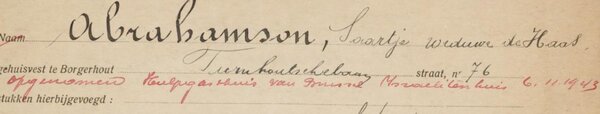 Naam Abrahamson, Saartje weduwe de Haas.
gehuisvest te Borgerhout Turnhoutschebaan straat, nr 76
opgenomen Hulpgasthuis van Brussel (Israelitenhuis 6.11.1943
stukken hierbijgevoegd :